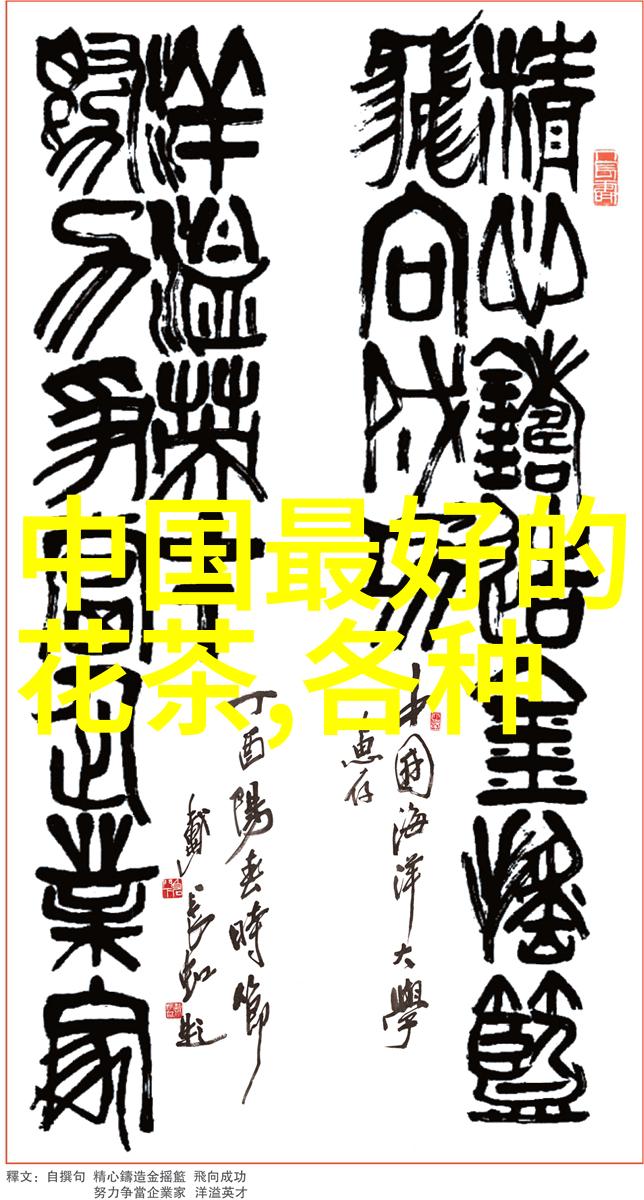 精心鑄造金摇籃
飛向成功
中國海洋大學
惠存
努力争當企業家
洋溢英才
丁酉陽春時節
戴長虹題
中国最好的
花茶,各种
釋文：自撰句 精心鑄造金摇籃 飛向成功
努力争當企業家 洋溢英才